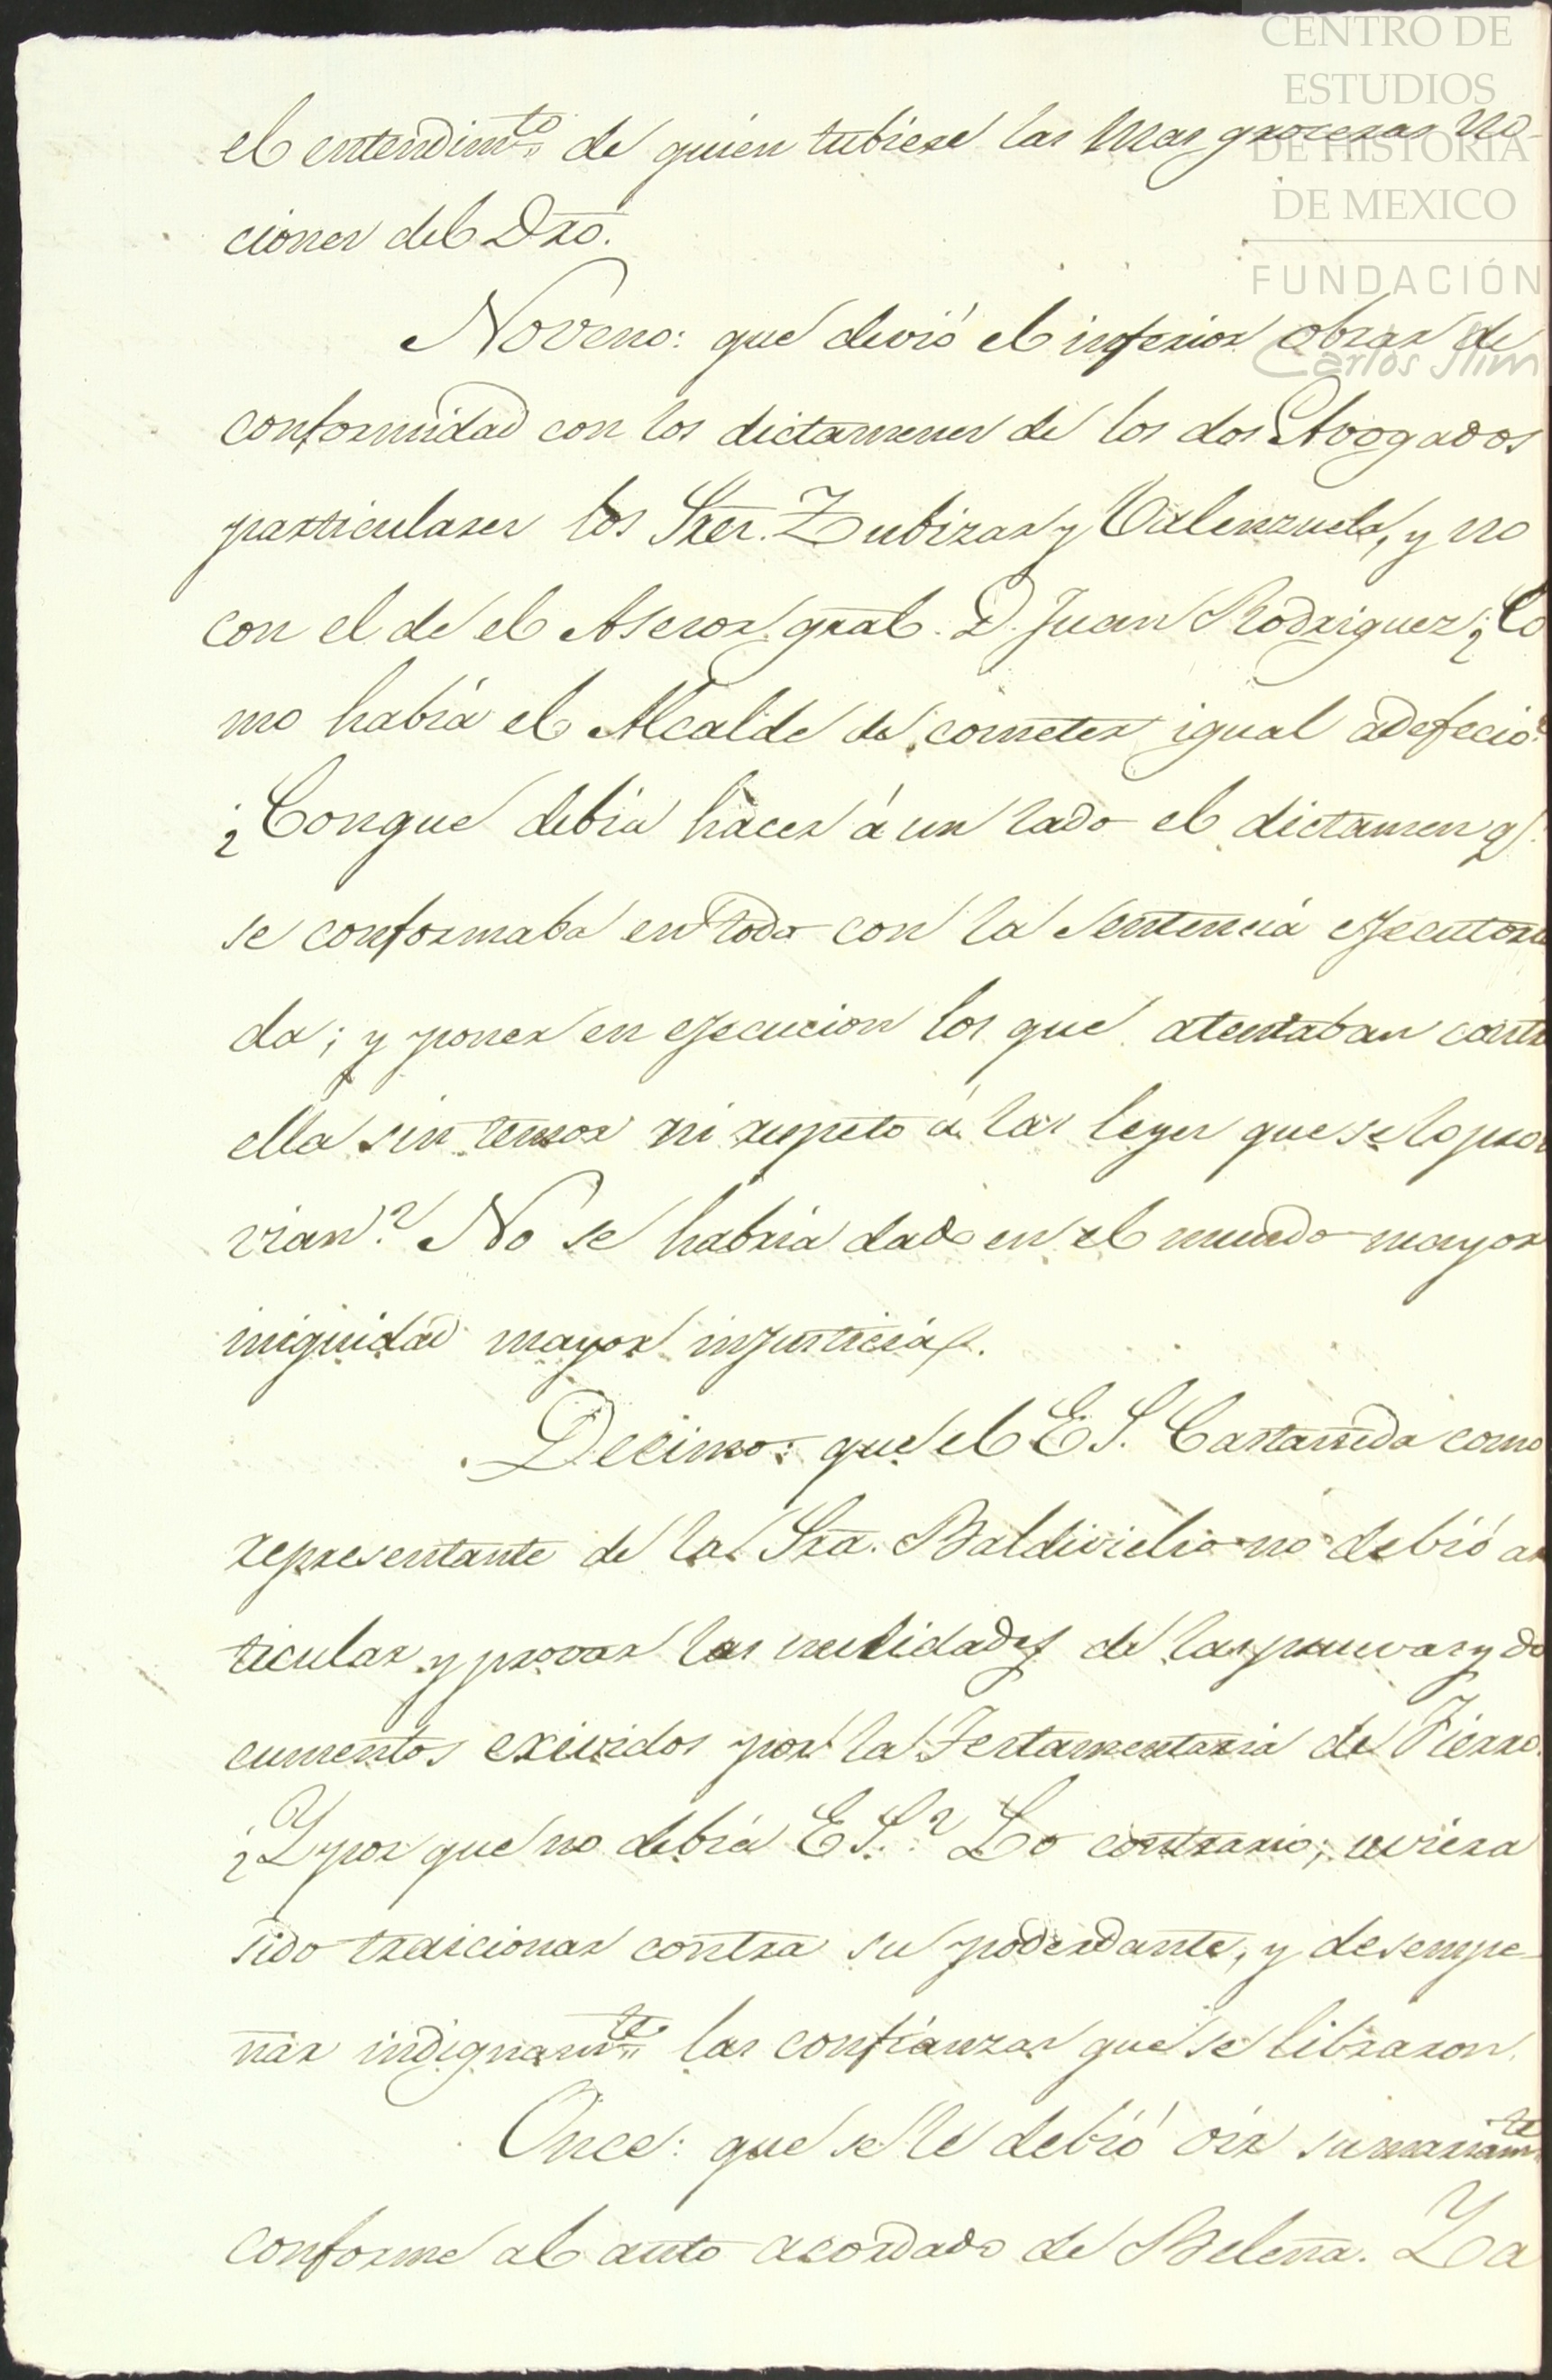 CENTRO DE
ESTUDIOS
DE HISTORIA
DE MEXICO
FUNDACIÓN
Carlos Slim
el entendimto. de quien tubiese las mas groceras no-
ciones del Dro.
Noveno: que devió el inferior obrar de
conformidad con los dictamenes de los dos Abogados
particulares los Sres. Zubizar y Valenzuela, y no
con el de el Asesor gral. D. Juan Rodriguez; ¿Co
mo habia el Alcalde de cometer igual adefecio?
¿Conque debia hacer á un lado el dictamen q.
se conformaba en todo con la Sentencia ejecutoria
da; y poner en ejecucion los que atentaban contra
ella sin temor ni respeto á las leyes que se lo proi
vian? No se habria dado en el mundo mayor
iniquidad mayor injusticia.
Decimo: que el E S. Castañeda como
representante de la Sra. Baldivielso no debió ar
ticular y provar las nulidades de las pruevas y do
cumentos exividos por la Testamentaria de Fierro.
¿Y por que no debia E S.? Lo contrario; uviera
sido traicionar contra su poderdante, y desempe-
ñar indignamte. las confianzas que se libraron.
Once: que se le debió oir sumariamte
conforme al auto acordado de Beleña. Ya